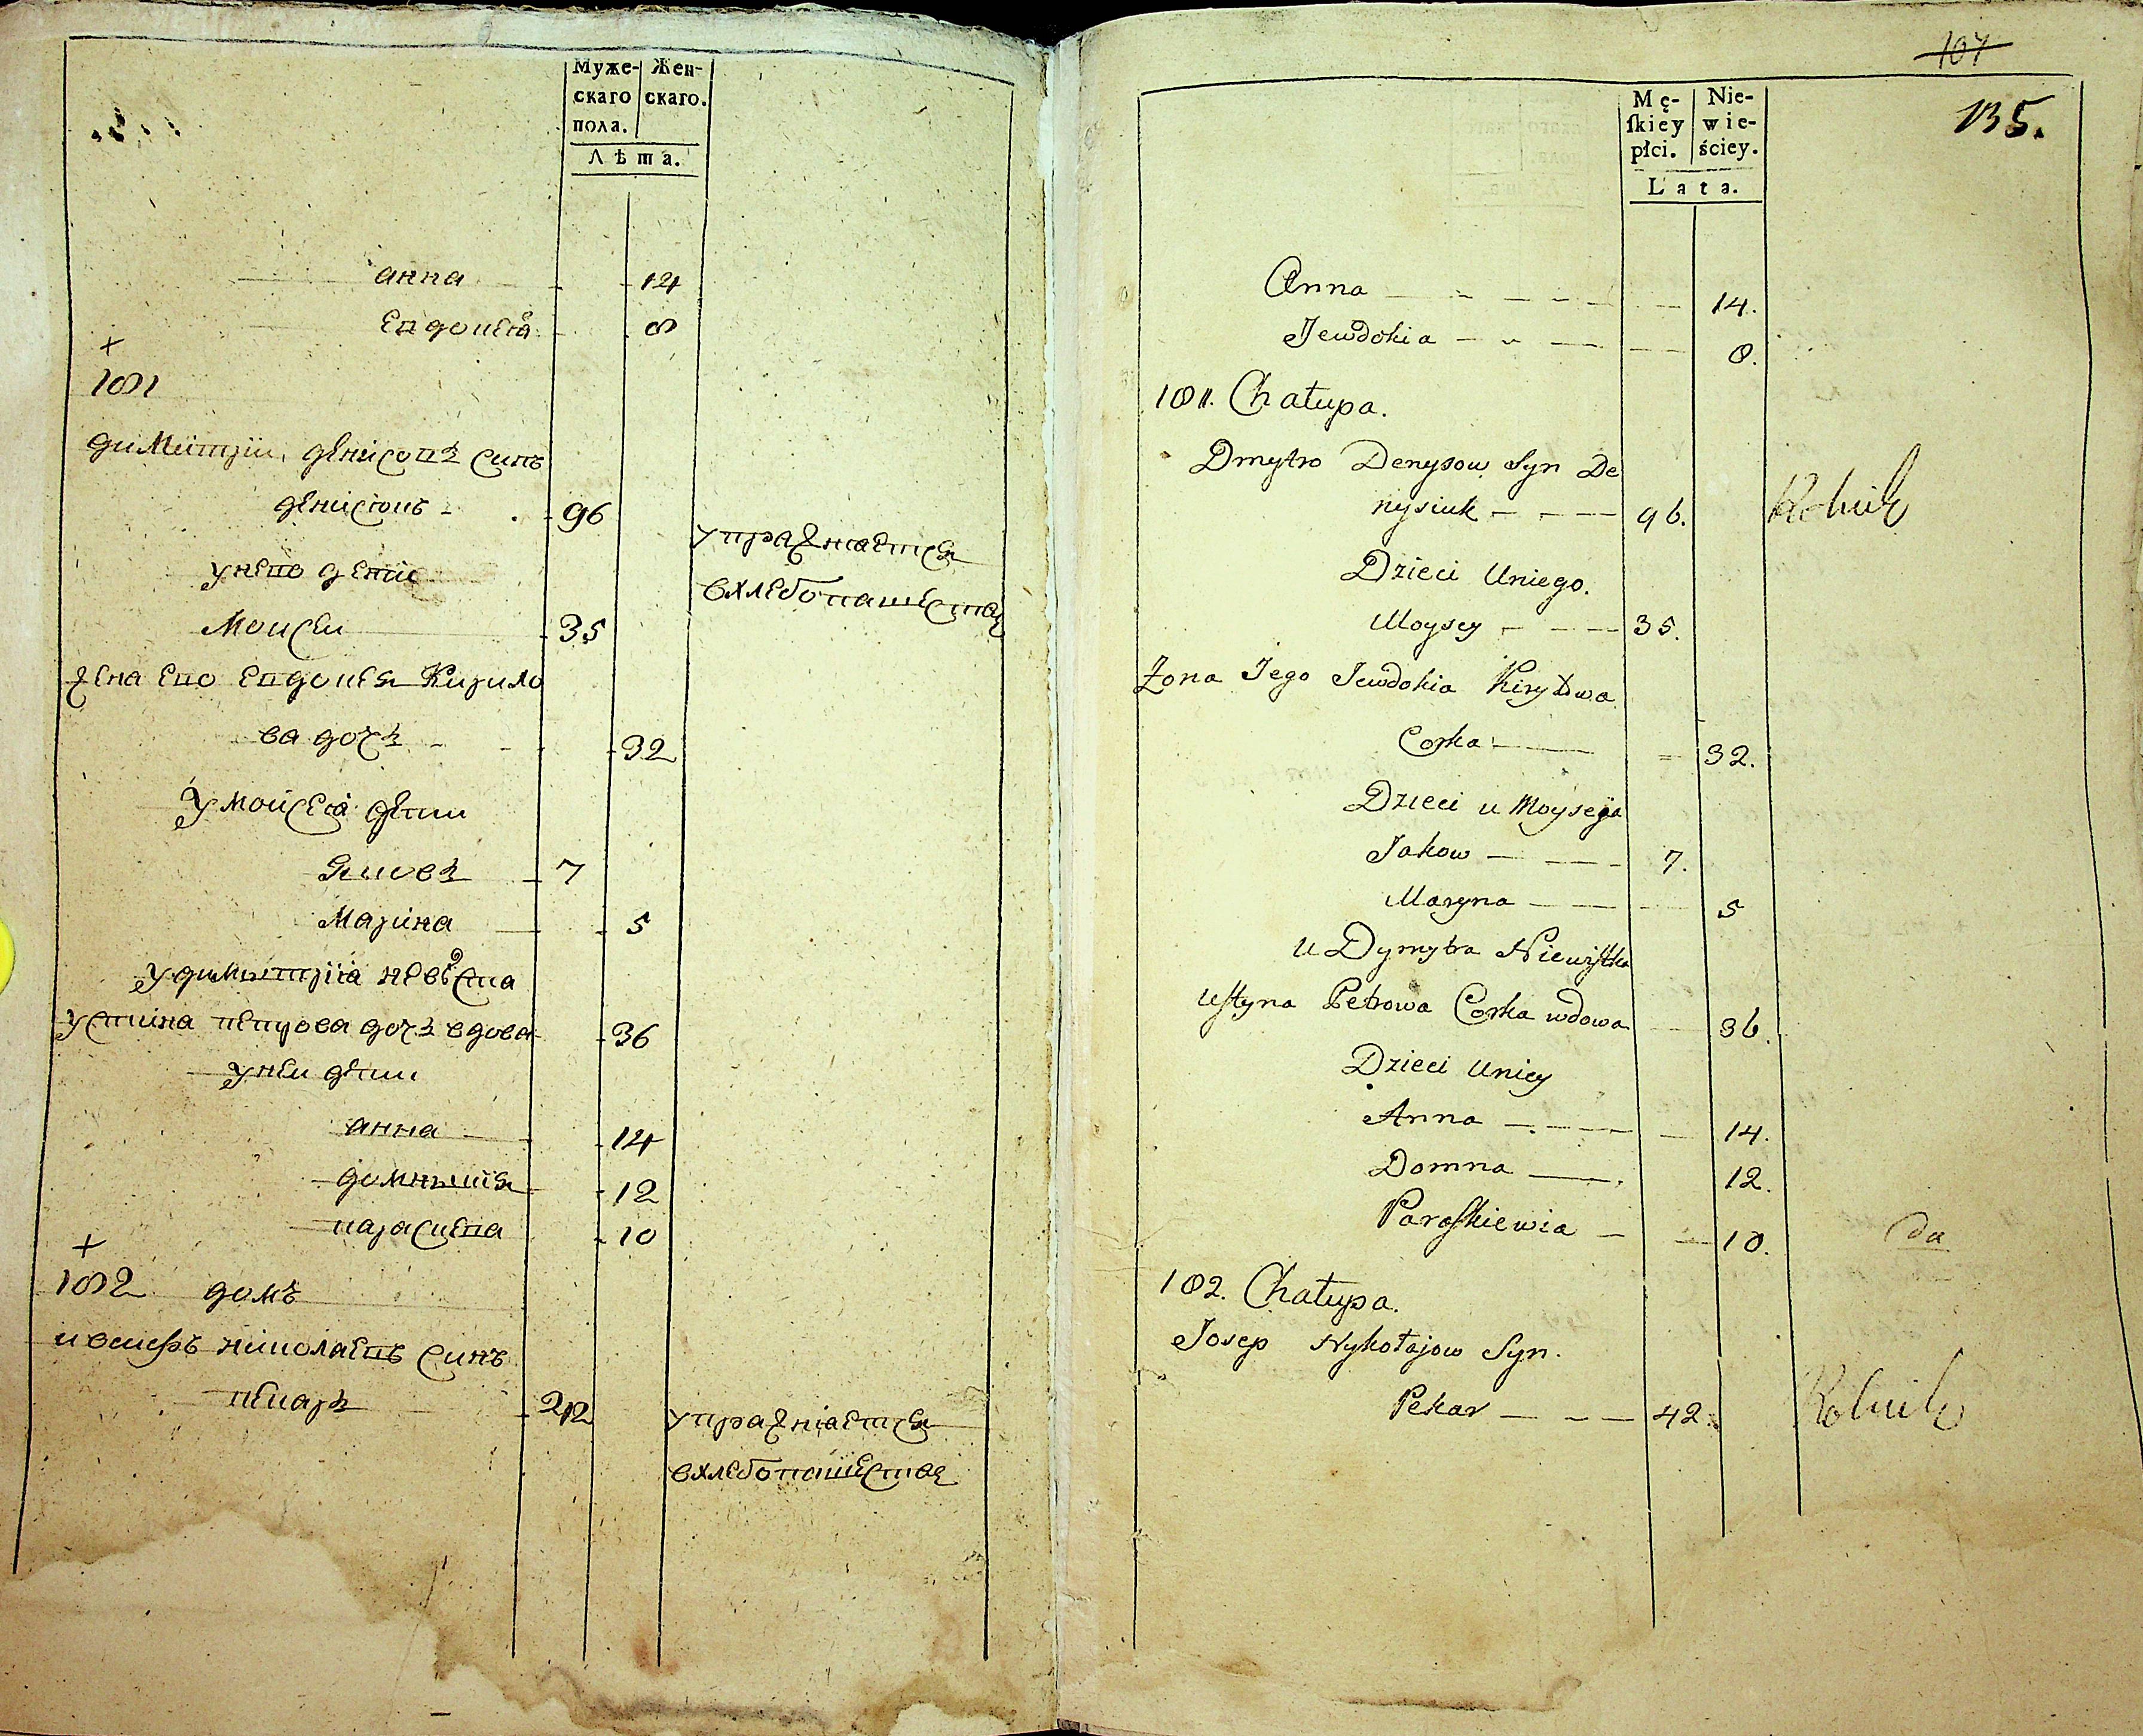 Муже-
скаго
пола.
Жен-
скаго.
Лѣта.
анна 14
Евдокеа 8
+
181
димитрїи денисовъ синъ
денисюкъ 96
упражнается
вхлебопашества
унево дети
Моисеи 35
жена ево евдокея Кирило
ва дочъ 32
у Моисеа дети
Яковъ 7
Марина 5
удимытрїа невеста
устина петрова дочъ вдова 36
унеи дети
анна 14
домникїя 12
параскева 10
+
182 домъ
иосифъ николаевъ синъ
пекаръ 42
упражнїается
вхлебопашества
107
135.
Mę-
ſkiey
płci.
Nie-
wie-
ściey.
Lata.
Anna 14.
Jewdokia 8.
181. Chałupa.
Dmytro Denysow Syn De
nysiuk 96. Rolnik
Dzieci Uniego.
Moysey 35.
Żona Jego Jewdokia Kiryłowa
Corka 32.
Dzieci u Moyseja
Jakow 7.
Maryna 5
U Dymytra Niewistka
Ustyna Petrowa Corka wdowa 36.
Dzieci Uniey
Anna 14.
Domna 12.
Paraſkiewia 10.
da
182. Chałupa.
Josep Nykołajow Syn.
Pekar 42. Rolnik